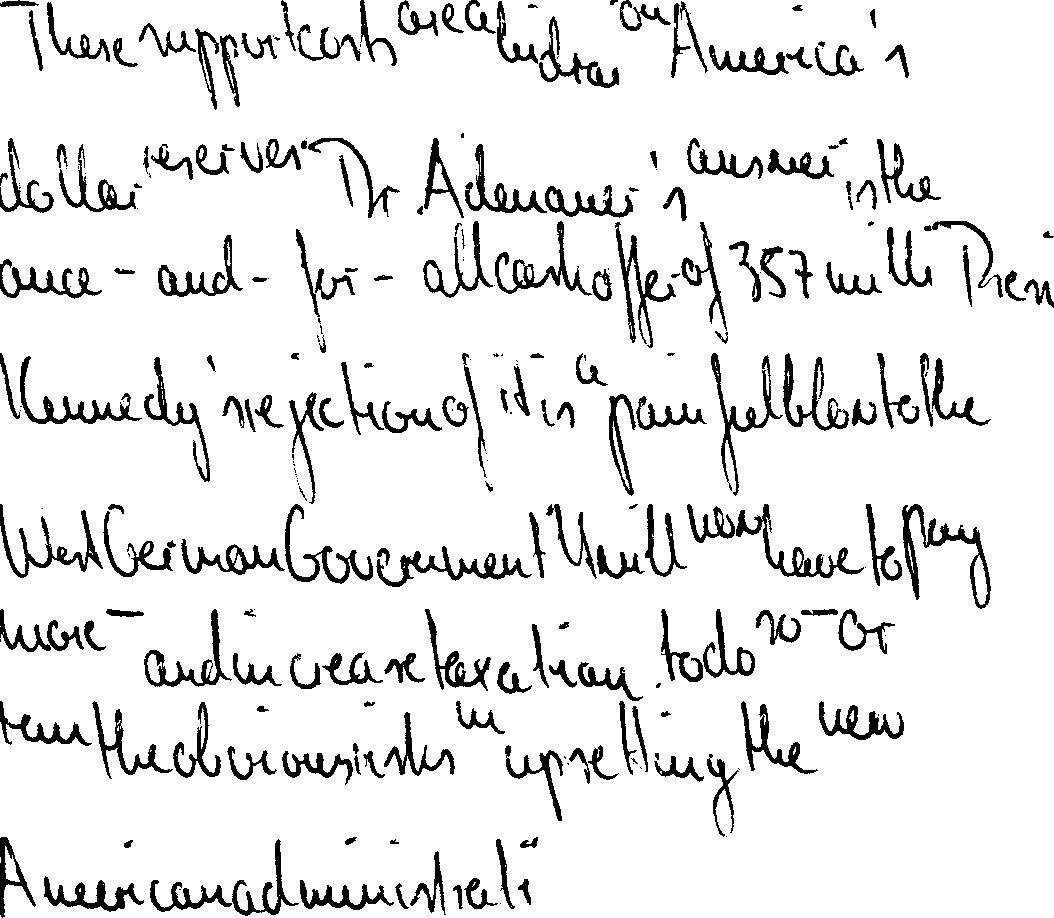 These support costs are a big drai on America's
dollar reserves Dr. Adenauer's answer is the
once-and-for-all cash offer of 357 milli Presi
Kennedy's rejection of it is a painful blow to the
West German Government It will now have to pay
more - and increase taxation to do so - or
run the obvious risks in upsetting the new
American administrati